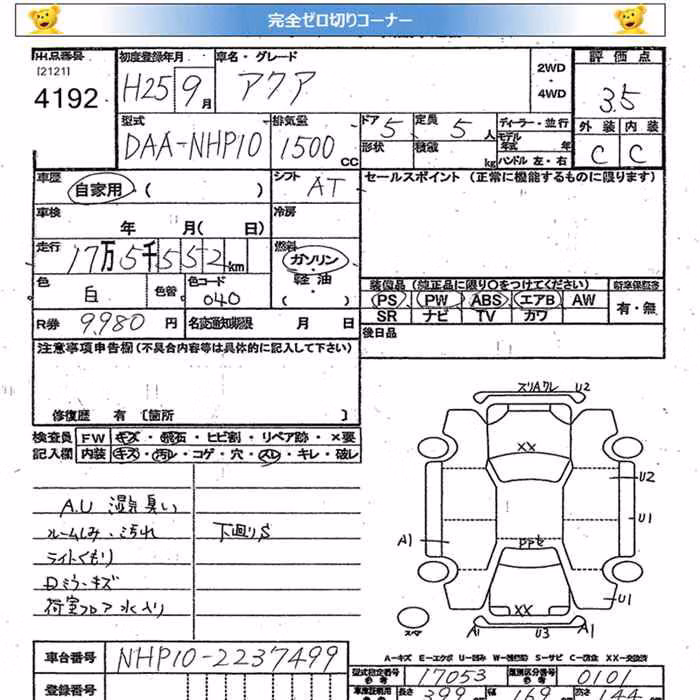 完全ゼロ切りコーナー
出品番号 初度登録年月 車名・グレード 2WD・4WD 評価点
[2121]
4192 H25 9月 アクア 3.5
型式 排気量 ドア 5 定員 5人 ディーラー・並行 外装 内装
DAA-NHP10 1500cc 形状 積載 kg モデル年式 年 C C
ハンドル 左・右
車歴 自家用 ( ) シフト AT セールスポイント (正常に機能するものに限ります)
車検 年 月( 日) 冷房
走行 17万5千552km 燃料 ガソリン・軽油・( )
色 白 色替 色コード 040 装備品 (純正品に限り○をつけてください) 新車保証書
PS PW ABS エアB AW 有・無
SR ナビ TV カワ
R券 9,980円 名変通知期限 月 日 後日品
注意事項申告欄(不具合内容等は具体的に記入して下さい)
修復歴 有 [箇所 ]
検査員 FW キズ・飛石・ヒビ割・リペア跡・×要
記入欄 内装 キズ・汚レ・コゲ・穴・スレ・キレ・破レ
A.U 湿気臭い
ルームしみ・汚れ 下廻りS
ライトくもり
Dミラーキズ
荷室フロア水入り
スリAワレ U2
XX
U2
U1
A1
XX
U1
スペア
A1 U3 A1
A-キズ E-エクボ U-凹み W-補修跡 S-サビ C-腐食 XX-交換済
車台番号 NHP10-2237499
型式指定番号 参考 17053 類別区分番号 参考 0101
登録番号 車庫証明用 参考 長さ 399 幅 169 高さ 144